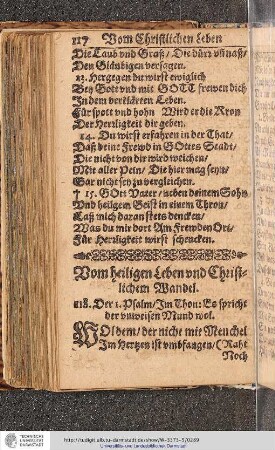 117 Vom Christlichen Leben
Die Laub vnd Graß / Die dürr vñ naß /
Den Gläubigen versagen.
13. Hergegen du wirst ewiglich
Bey Gott vnd mit GOTT frewen dich
In dem verklärten Leben.
Für spott vnd hohn Wird er die Kron
Der Herrligkeit dir geben.
14. Du wirst erfahren in der That /
Daß deine Frewd in GOttes Stadt /
Die nicht von dir wird weichen /
Mit aller Pein / Die hier mag seyn /
Gar nicht sey zu vergleichen.
† 15. GOtt Vater / neben deinem Sohn
Vnd heilgem Geist in einem Thron /
Laß mich daran stets dencken /
Was du mir dort Am Frewden Ort /
Für Herrligkeit wirst schencken.
Vom heiligen Leben vnd Christ-
lichem Wandel.
118. Der 1. Psalm / Im Thon: Es spricht
der vnweisen Mund wol.
WOl dem / der nicht mit Heuchel
Im Hertzen ist vmbfangen / (Raht
Noch
TECHNISCHE
UNIVERSITÄT
DARMSTADT
Universitäts- und Landesbibliothek Darmstadt